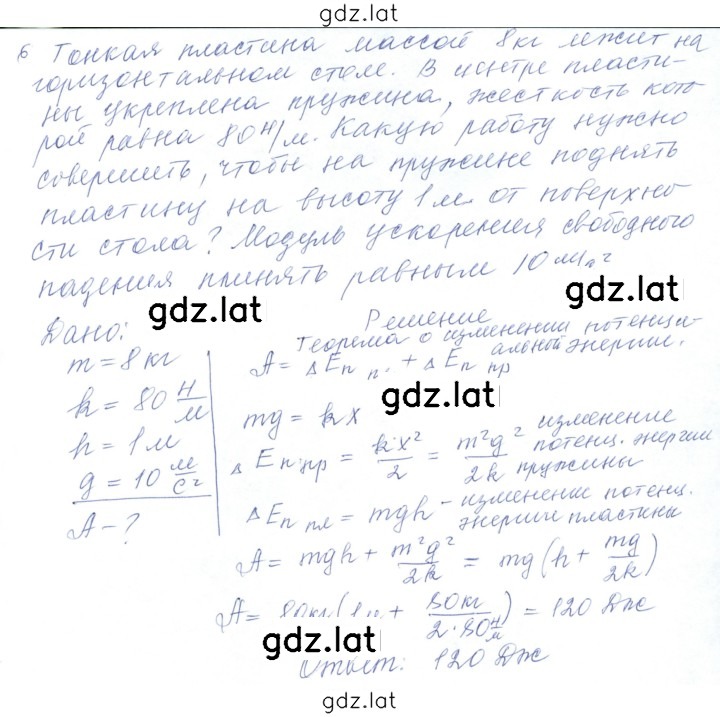 gdz.lat
6 Тонкая пластина массой 8кг лежит на
горизонтальном столе. В центре пласти-
ны укреплена пружина, жесткость кото
рой равна 80 Н/м. Какую работу нужно
совершить, чтобы на пружине поднять
пластину на высоту 1 м от поверхно
сти стола? Модуль ускорения свободного
падения принять равным 10 м/с²
gdz.lat
gdz.lat
Дано:
m = 8 кг
k = 80 Н/м
h = 1 м
g = 10 м/с²
A - ?
Решение
Теорема о изменении потенци-
альной энергии.
A = ΔEп п. + ΔEп пр
gdz.lat
mg = kx
ΔEп.пр = kx²/2 = m²g²/2k
изменение
потенц. энергии
пружины
ΔEп пл = mgh - изменение потенц.
энергии пластины
A = mgh + m²g²/2k = mg(h + mg/2k)
A = (1 + 80кг/2·80 Н/м) = 120 Дж
gdz.lat
Ответ: 120 Дж
gdz.lat